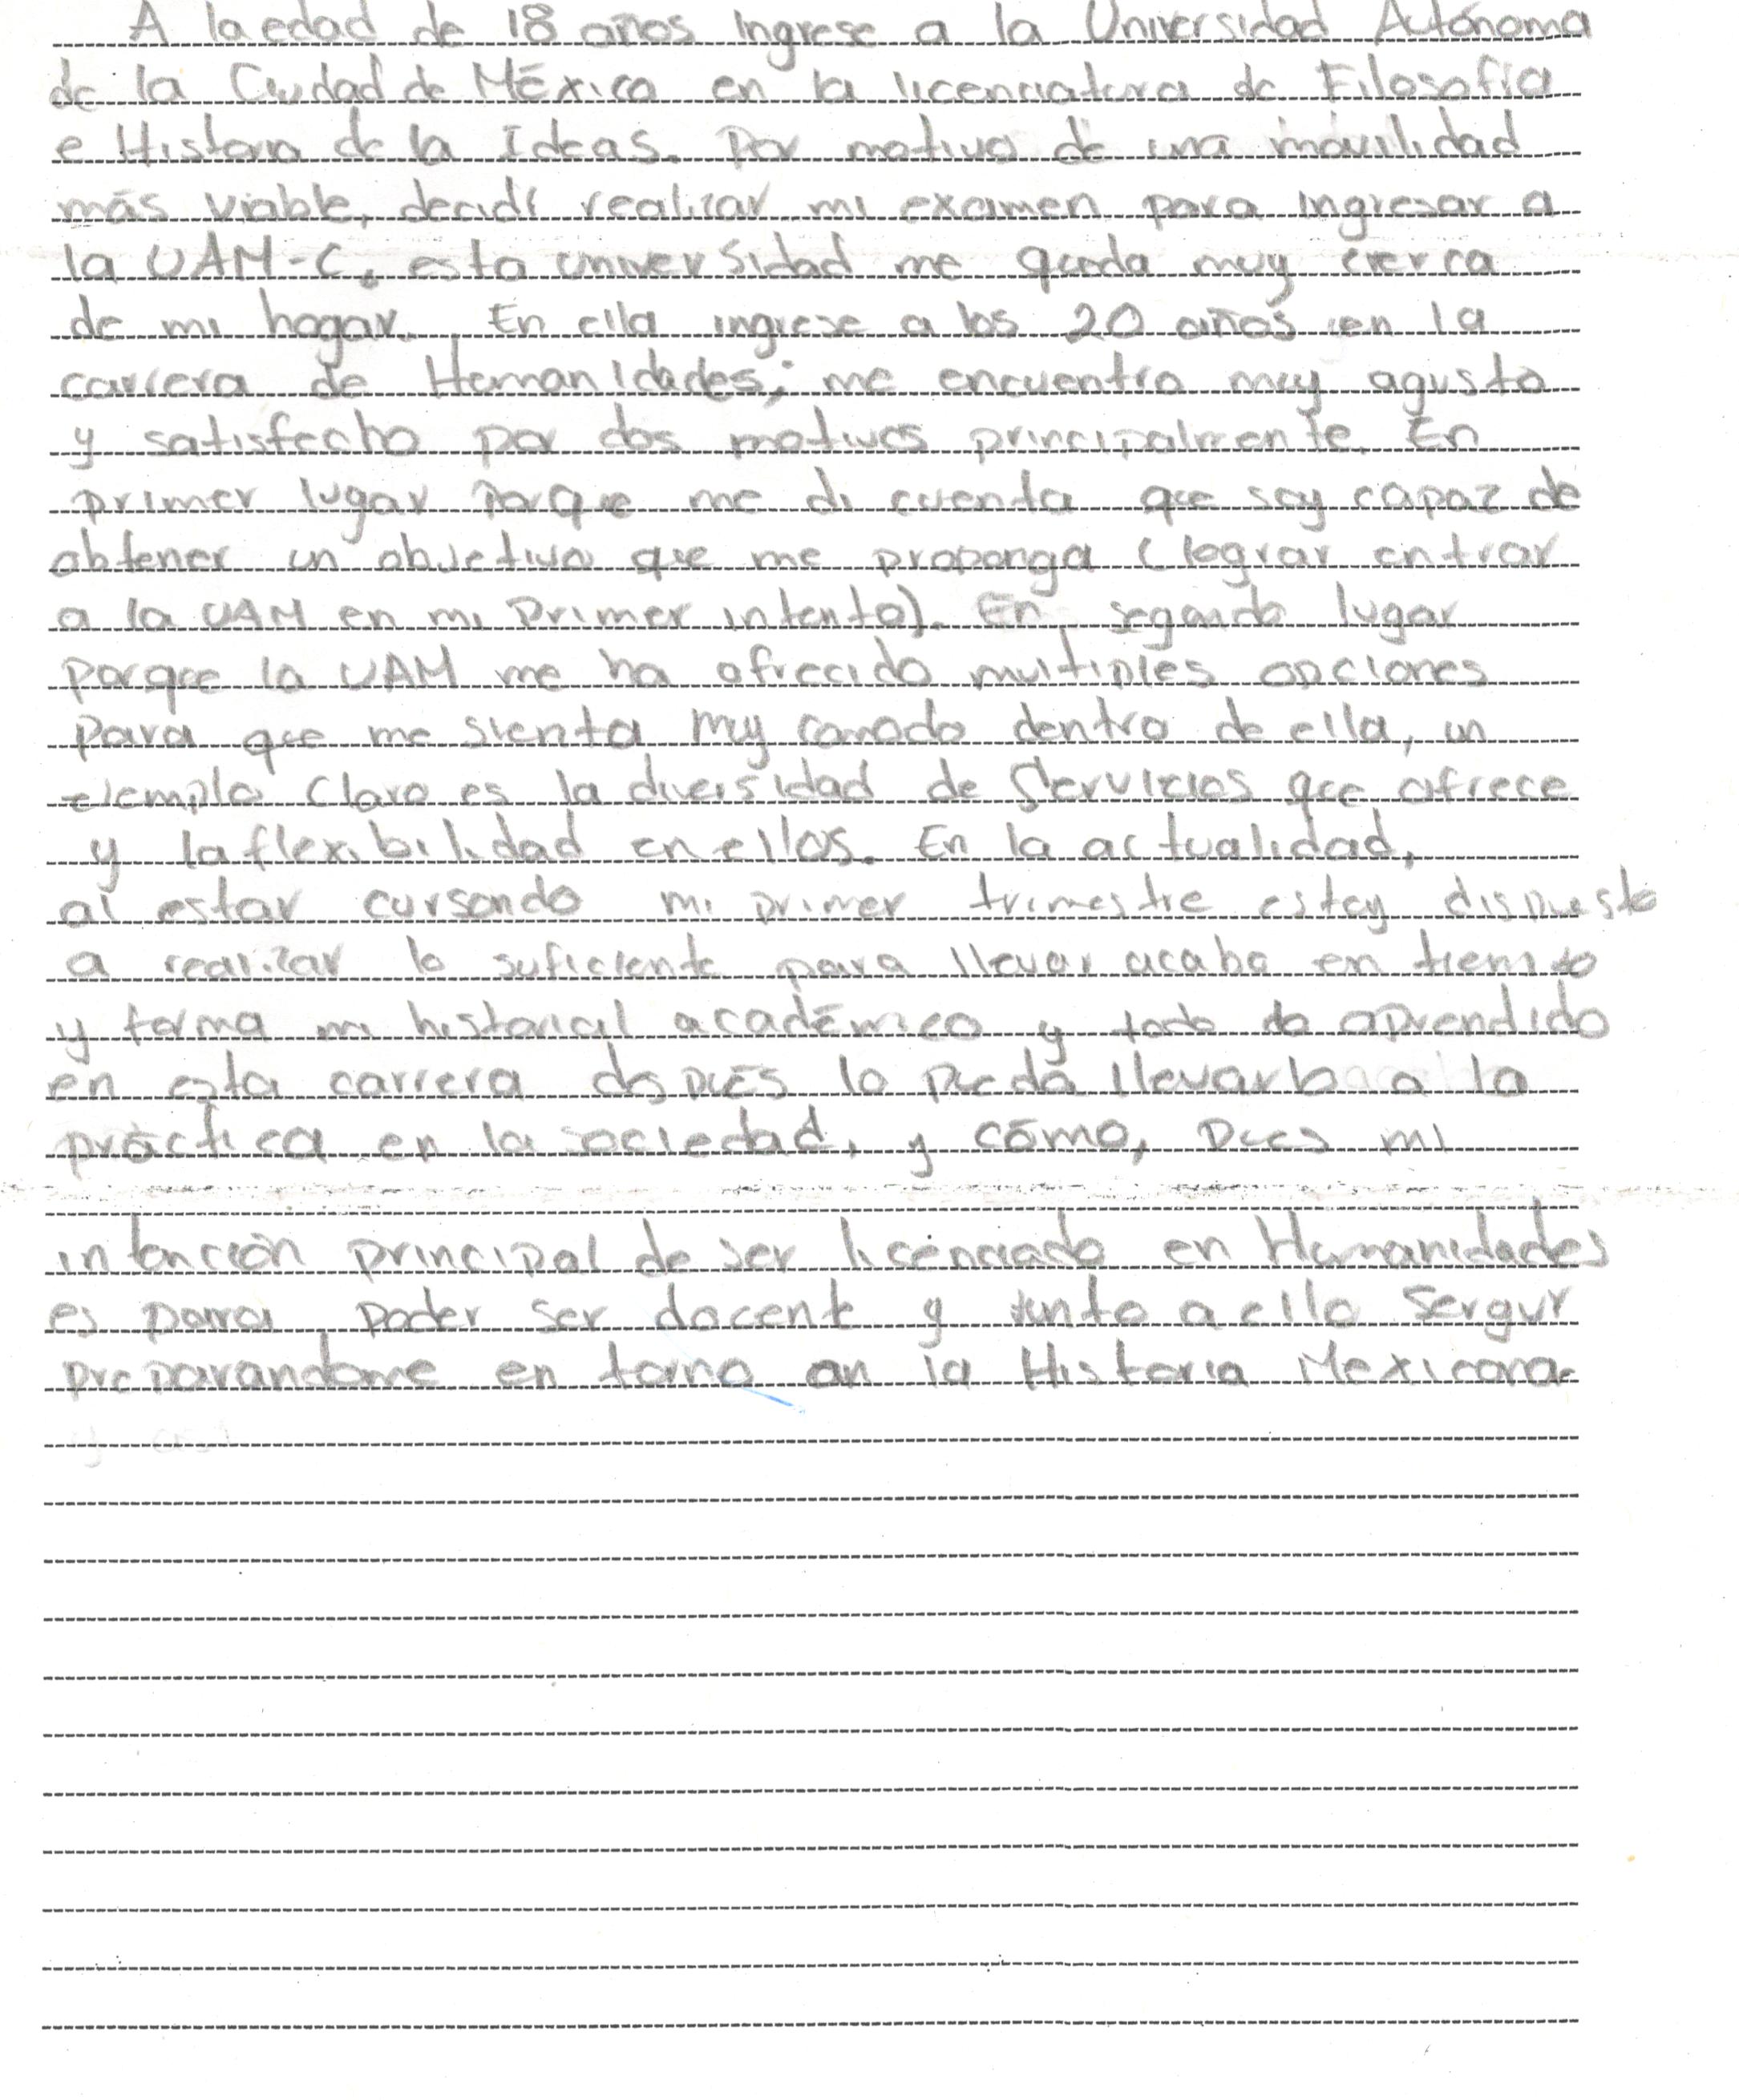 A la edad de 18 años ingrese a la Universidad Autónoma
de la Ciudad de México en la licenciatura de Filosofía
e Historia de la Ideas. Por motivo de una movilidad
más viable, decidí realizar mi examen para ingresar a
la UAM-C, esta universidad me queda muy cerca
de mi hogar. En ella ingrese a los 20 años en la
carrera de Humanidades; me encuentro muy agusto
y satisfecho por dos motivos principalmente. En
primer lugar porque me di cuenta que soy capaz de
obtener un objetivo que me proponga (lograr entrar
a la UAM en mi primer intento). En segundo lugar
porque la UAM me ha ofrecido multiples opciones
para que me sienta my comodo dentro de ella, un
ejemplo claro es la diversidad de Servicios que ofrece
y la flexibilidad en ellos. En la actualidad,
al estar cursando mi primer trimestre estoy dispuesto
a realizar lo suficiente para llevar acabo en tiempo
y forma mi historial académico y todo lo aprendido
en esta carrera después lo pueda llevarlo a la
práctica en la sociedad, y cómo, pues mi
intención principal de ser licenciado en Humanidades
es para poder ser docente y junto a ello Serguir
preparandome en torno an la Historia Mexicana.